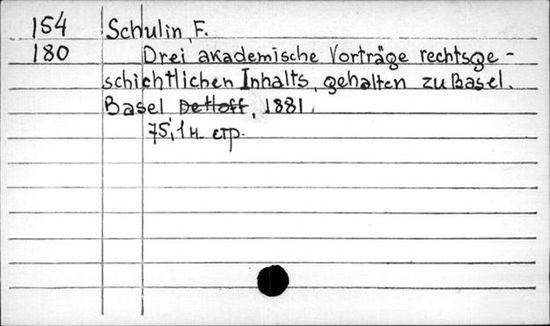 154 Schulin, F.
180 Drei akademische Vorträge rechtsge-
schichtlichen Inhalts, gehalten zu Basel.
Basel Detloff, 1881.
75, 1 н. стр.